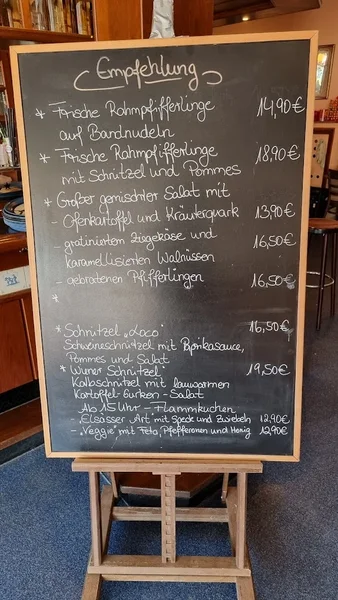 Empfehlung
* Frische Rahmpfifferlinge 14,90€
auf Bandnudeln
* Frische Rahmpfifferlinge 18,90€
mit Schnitzel und Pommes
* Großer gemischter Salat mit
- Ofenkartoffel und Kräuterquark 13,90€
- gratiniertem Ziegekäse und 16,50€
karamellisierten Walnüssen
- gebratenen Pfifferlingen 16,50€
*
* Schnitzel "Loco" 16,50€
Schweineschnitzel mit Paprikasauce,
Pommes und Salat
* "Wiener Schnitzel" 19,50€
Kalbschnitzel mit lauwarmen
Kartoffel-Gurken-Salat
Ab 15 Uhr - Flammkuchen
- "Elsässer Art" mit Speck und Zwiebeln 12,90€
- "Veggie" mit Feta, Pfefferonen und Honig 12,90€